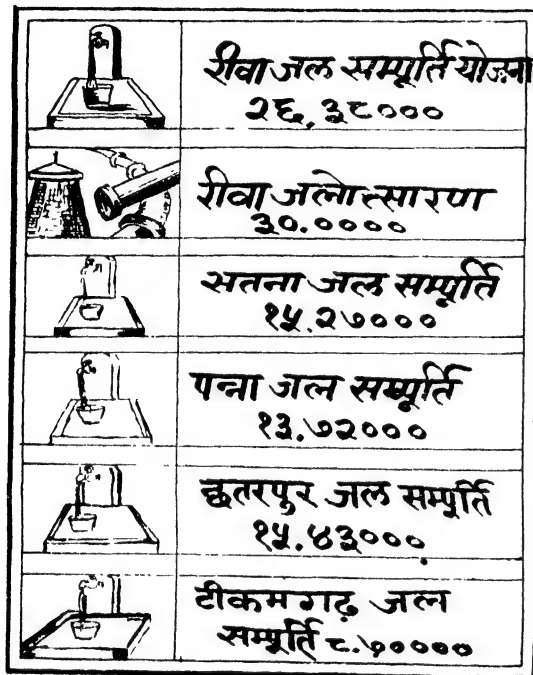 रीवा जल सम्पूर्ति योजना
२६.३८०००
रीवा जलोत्सारण
३०.००००
सतना जल सम्पूर्ति
१५.२७०००
पन्ना जल सम्पूर्ति
१३.७२०००
छतरपुर जल सम्पूर्ति
१५.४३०००
टीकमगढ़ जल
सम्पूर्ति ८.७००००